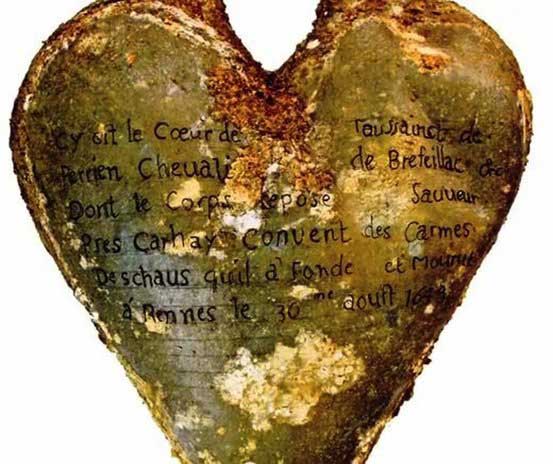 Cy git le Cœur de Toussainct de
Perrien Cheuali de Brefeillac
Dont le Corps Repose Sauueur
Pres Carhay Convent des Carmes
Deschaus quil à Fondé et Mourut
à Rennes le 30me aouft